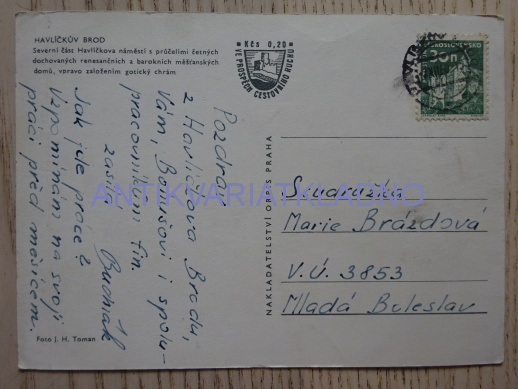 HAVLÍČKŮV BROD
Severní část Havlíčkova náměstí s průčelími četných
dochovaných renesančních a barokních měšťanských
domů, vpravo založením gotický chrám
Kčs 0,20
VE PROSPĚCH CESTOVNÍHO RUCHU
ČESKOSLOVENSKO
Pozdrav
z Havlíčkova Brodu,
Vám, Bohoušovi i spolu-
pracovníkům fin.
zasílá
Budňák
Jak jde práce?
Vzpomínám na svoji
práci před měsícem.
Foto J. H. Toman
NAKLADATELSTVÍ ORBIS PRAHA
Soudružka
Marie Brázdová
V.Ú. 3853
Mladá Boleslav
ANTIKVARIATKLADNO